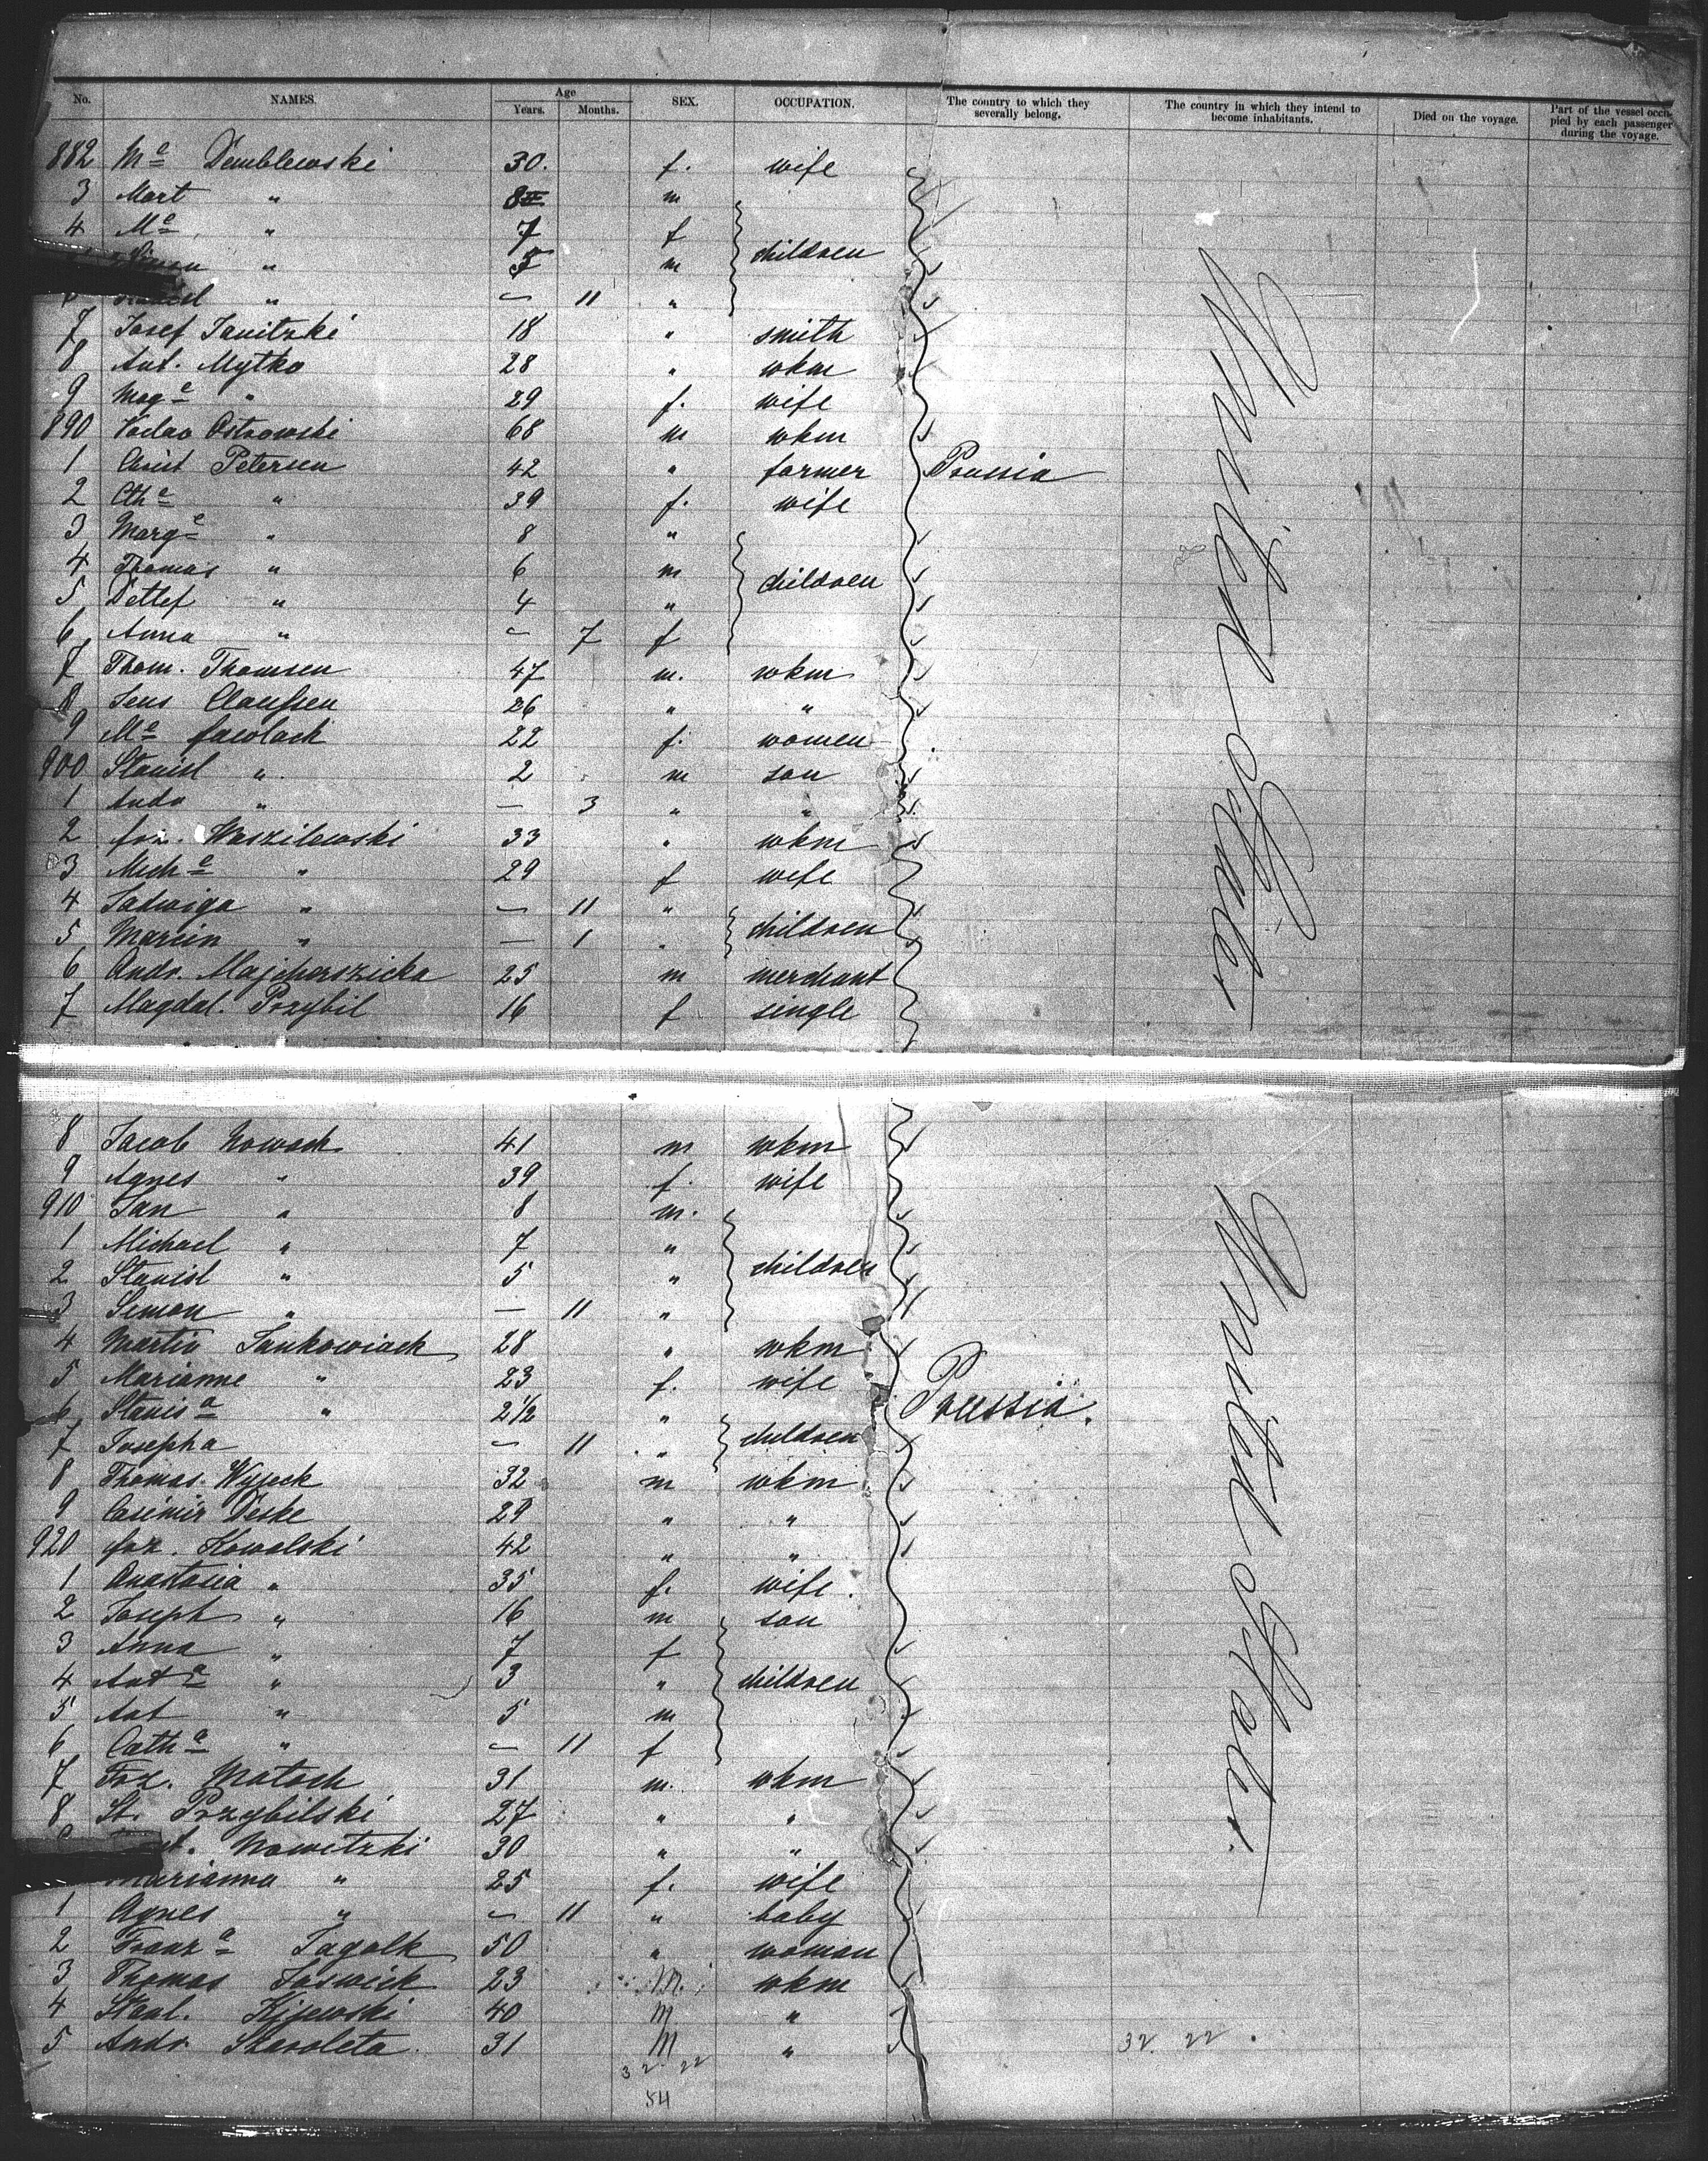 No. NAMES. Age Years. Months. SEX. OCCUPATION. The country to which they severally belong. The country in which they intend to become inhabitants. Died on the voyage. Part of the vessel occupied by each passenger during the voyage.
882 Me Demblewski 30. f. wife
3 Mart " 8 m
4 Me " 7 f
" 5 m children
" – 11 "
7 Josef Janitzki 18 " smith
8 Ant. Mytko 28 " wkm
9 Mage " 29 f. wife
890 Vaclav Ostrowski 68 m wkm
1 Christ Petersen 42 " farmer Prussia
2 Cthe " 39 f. wife
3 Marge " 8 "
4 Thomas " 6 m children
5 Detlef " 4 "
6 Anna " – 7 f
7 Thom. Thomsen 47 m. wkm
8 Jens Claussen 26 " "
9 Me 22 f. women
900 Stanisl " 2 m son
1 Andr " – 3 " "
2 Joz. Waszilewski 33 " wkm
3 Miche " 29 f wife
4 Jadwiga " – 11 "
5 Marcin " – 1 " children
6 Andr. Majcherszicka 25 m merchant
7 Magdal. Przybil 16 f single
United States
8 Jacob Nowack 41 m wkm
9 Agnes " 39 f. wife
910 Jan " 8 m.
1 Michael " 7 "
2 Stanisl " 5 " children
3 Simon " – 11 "
4 Martin Jankowiack 28 " wkm
5 Marianne " 23 f. wife
6 Stanisa " 2 1/2 " Prussia.
7 Josepha – 11 " children
8 Thomas Wyjeck 32 m wkm
9 Casimir Deske 29 " "
920 Joz. Kowalski 42 " "
1 Anastasia " 35 f. wife.
2 Joseph " 16 m son
3 Anna " 7 f
4 Anta " 3 " children
5 Ant " 5 m
6 Catha " – 11 f
7 Joz. Matach 31 m. wkm
8 St. Przybilski 27 " "
Nowitzki 30 " "
Marianna " 25 f. wife
1 Agnes " – 11 " baby
2 Franza Jagalk 50 " woman
3 Thomas Jaswick 23 M. wkm
4 Stanl. Kijewski 40 M "
5 Andr. Skaroleta 31 M "
United States.
32. 22.
32 22
54